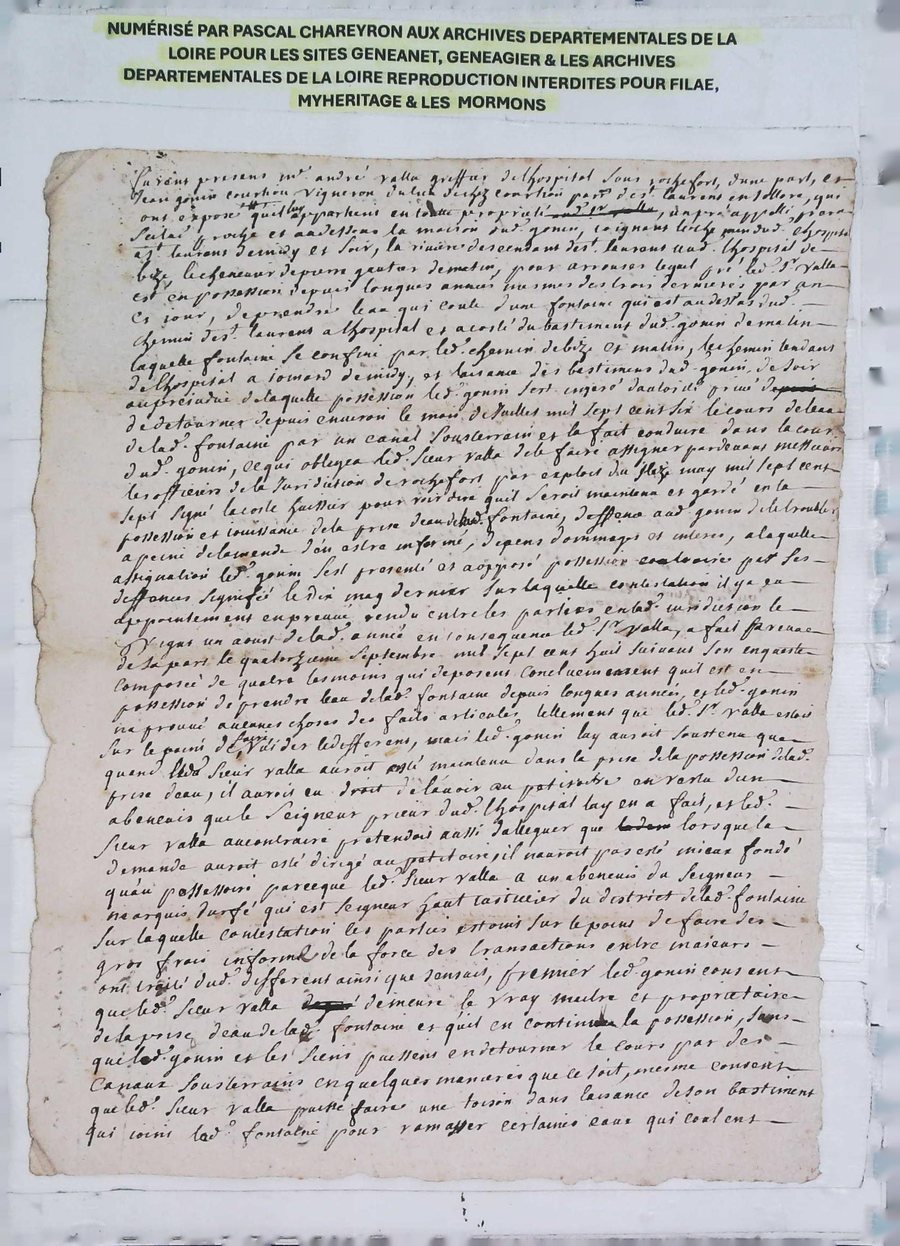 NUMÉRISÉ PAR PASCAL CHAREYRON AUX ARCHIVES DEPARTEMENTALES DE LA
LOIRE POUR LES SITES GENEANET, GENEAGIER & LES ARCHIVES
DEPARTEMENTALES DE LA LOIRE REPRODUCTION INTERDITES POUR FILAE,
MYHERITAGE & LES MORMONS
furent presens mre andré valla greffier de lhospital sous rochefort, dune part, et
Jean gonin courtiou vigneron du lieu de chez courtiou parr dest laurent en sollore, qui
ont exposé quil luy appartient en toutte proprieté, un pré appellé
scitué proche et audessous la maison dud. gonin, joignant le chemin dud. lhospital
a st laurent de midy et soir, la riviere descendant dest laurent aud. lhospital de
bize le cheneuier de pierre gautier de matin, pour arrouser lequel pré led. sr valla
est en possession depuis longues années mesmes des trois dernieres par an
et jour, de prendre leau qui coule dune fontaine qui est au dessus du d.
chemin dest laurent a lhospital et a costé du bastiment dud. gonin de matin
laquelle fontaine se confine par led. chemin de bize et matin, le chemin tendant
de lhospital a de midy, et laisance des bastimens dud. gonin de soir
au prejudice de laquelle possession led. gonin sest ingeré dautorité privé
de detourner depuis environ le mois de juillet mil sept cent six le cours de leau
de lad. fontaine par un canal sousterrain et la fait conduire dans la cour
dud. gonin, ce qui obligea led. sieur valla de le faire assigner pardevant messieurs
les officiers de la juridiction de rochefort, par exploit du seize may mil sept cent
sept signé lacoste huissier pour voir dire quil seroit maintenu et gardé en la
possession et jouissance de la prise deau de lad. fontaine, deffence aud. gonin de le troubler
a peine de lamende den estre informé, depens dommages et interes, a laquelle
assignation led. gonin sest presenté et a opposé possession contraire par ses
deffences signifié le dix may dernier sur laquelle contestation il y a eu
apointement en preuve rendu entre les parties en lad. juridiction le
vingt un aoust de lad. année en consequence led. sr valla, a fait preuve
de sa part le quatorzieme septembre mil sept cent huit suivant son enqueste
composée de quatre tesmoins qui deposent concluemment quil est en
possession de prendre leau de lad. fontaine depuis longues années, et led. gonin
na prouvé aucunes choses des faits articulés, tellement que led. sr valla estoit
sur le point de faire vuider le different, mais led. gonin luy auroit soutenu que
quand led. sieur valla auroit esté maintenu dans la prise de la possession de lad.
prise deau, il auroit eu droit de lavoir au petitoire en vertu dun
abenevis que le seigneur prieur dud. lhospital luy en a fait, et led.
sieur valla au contraire pretendoit aussi dalleguer que lorsque la
demande auroit esté dirigé au petitoire il nauroit pas esté mieux fondé
quau possessoire parceque led. sieur valla a un abenevis du seigneur
marquis durfé qui est seigneur haut justicier du district de lad. fontaine
sur laquelle contestation les parties estoint sur le point de faire des
gros frais informé de la force des transactions entre majeurs
ont traité dud. different ainsi que sensuit, premier led. gonin consent
que led. sieur valla demeure le vray maitre et proprietaire
de la prise deau de lad. fontaine et quil en continue la possession, sans
que led. gonin et les siens puissent en detourner le cours par des
canaux sousterrains en quelques manieres que ce soit, mesme consent
que led. sieur valla puisse faire une toison dans laisance de son bastiment
qui joint lad. fontaine pour ramasser certaines eaux qui coulent